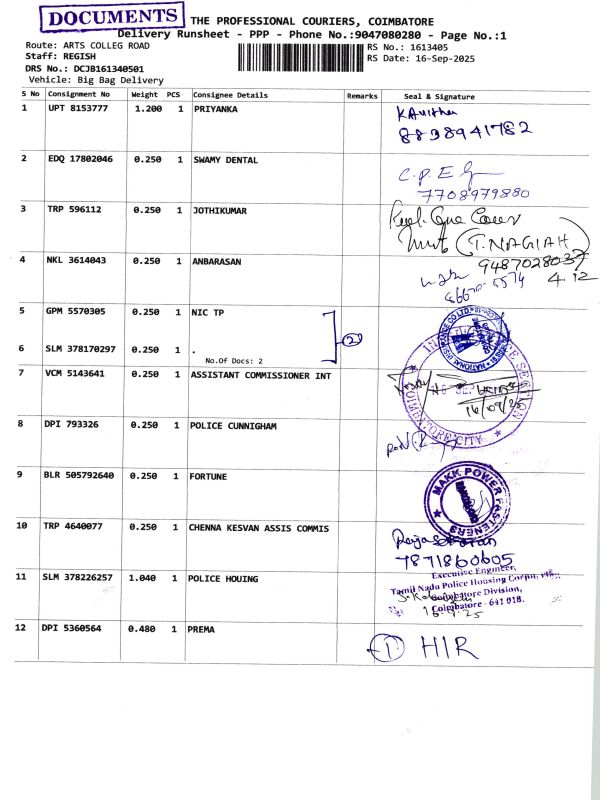 DOCUMENTS
THE PROFESSIONAL COURIERS, COIMBATORE
Delivery Runsheet - PPP - Phone No.:9047080280 - Page No.:1
Route: ARTS COLLEG ROAD
RS No.: 1613405
Staff: REGISH
RS Date: 16-Sep-2025
DRS No.: DCJB161340501
Vehicle: Big Bag Delivery
S No Consignment No Weight PCS Consignee Details Remarks Seal & Signature
1 UPT 8153777 1.200 1 PRIYANKA
Kavitha
8838941782
2 EDQ 17802046 0.250 1 SWAMY DENTAL
C.P.E
7708979880
3 TRP 596112 0.250 1 JOTHIKUMAR
(T.NAGIAH)
9487028037
4 NKL 3614043 0.250 1 ANBARASAN
4.12
5 GPM 5570305 0.250 1 NIC TP
2
6 SLM 378170297 0.250 1 .
No.Of Docs: 2
7 VCM 5143641 0.250 1 ASSISTANT COMMISSIONER INT
16/09/25
COIMBATORE CITY
8 DPI 793326 0.250 1 POLICE CUNNIGHAM
9 BLR 505792640 0.250 1 FORTUNE
MAKK POWER FASTENERS
10 TRP 4640077 0.250 1 CHENNA KESVAN ASSIS COMMIS
Rajasekaran
7871860605
11 SLM 378226257 1.040 1 POLICE HOUING
Executive Engineer,
Tamil Nadu Police Housing Corpn. Ltd.,
Coimbatore Division,
Coimbatore - 641 018.
12 DPI 5360564 0.480 1 PREMA
1 HIR